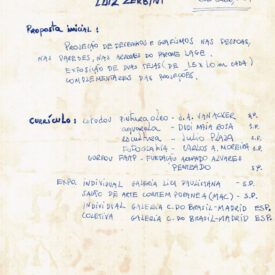 LUIZ ZERBINI
PROPOSTA INICIAL:
PROJEÇÃO DE DESENHOS E GRAFISMOS NAS PESSOAS,
NAS PAREDES, NAS ÁRVORES DO PARQUE LAGE.
EXPOSIÇÃO DE DUAS TELAS DE 1.50 CADA
COMPLEMENTARES DAS PROJEÇÕES.
CURRÍCULO: ESTUDOU PINTURA ÓLEO - J.A. VAN ACKER S.P.
AQUARELA - DUDI MAIA ROSA S.P.
ESCULTURA - JULIO PLAZA S.P.
FOTOGRAFIA - CARLOS A. MOREIRA S.P.
CURSOU FAAP - FUNDAÇÃO ARMANDO ALVARES
PENTEADO S.P.
EXPO INDIVIDUAL GALERIA PAULISTANA - S.P.
SALÃO DE ARTE CONTEMPORÂNEA (MAC) - S.P.
INDIVIDUAL GALERIA C. DO BRASIL - MADRID ESP.
COLETIVA GALERIA C. DO BRASIL - MADRID ESP.